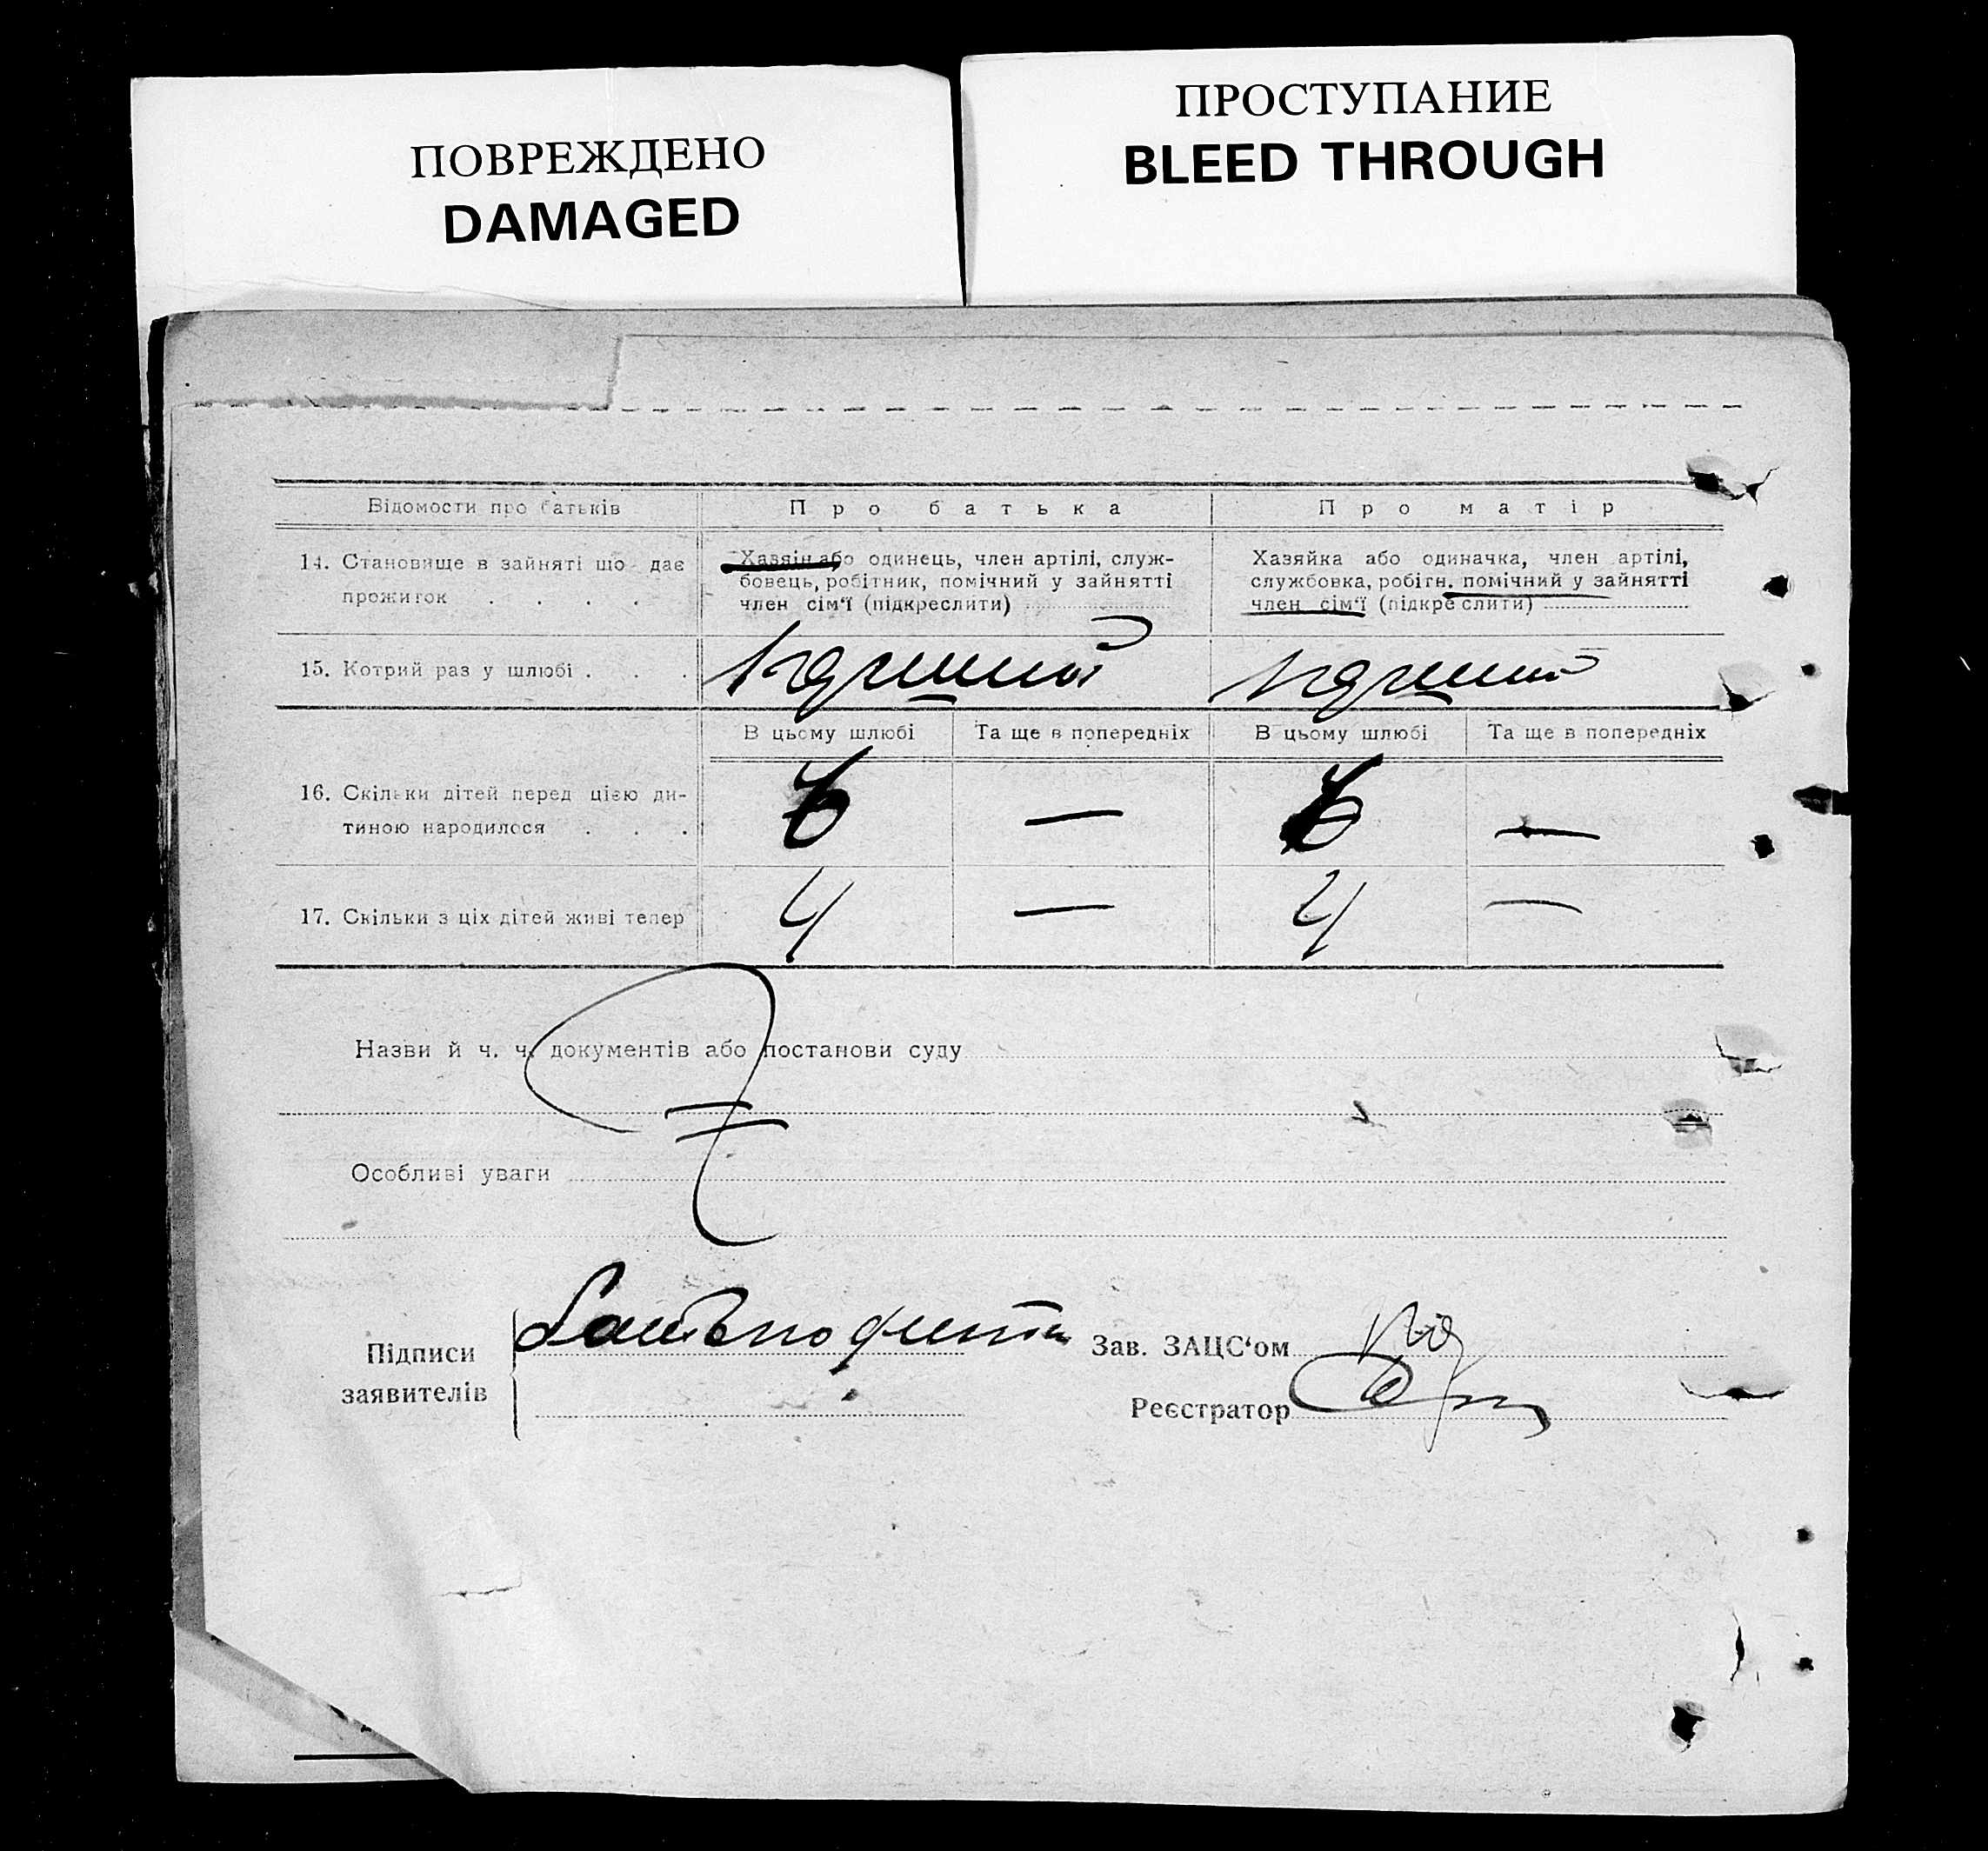 ПОВРЕЖДЕНО
DAMAGED
ПРОСТУПАНИЕ
BLEED THROUGH
Відомости про батьків
Про батька
Про матір
14. Становище в зайняті що дає
прожиток . . . .
Хазяін або одинець, член артілі, служ-
бовець, робітник, помічний у зайнятті
член сім'ї (підкреслити)
Хазяйка або одиначка, член артілі,
службовка, робітн. помічний у зайнятті
член сім'ї (підкреслити)
15. Котрий раз у шлюбі . . .
В цьому шлюбі
Та ще в попередніх
В цьому шлюбі
Та ще в попередніх
16. Скільки дітей перед цією ди-
тиною народилося . . .
6 — 6 —
17. Скільки з ціх дітей живі тепер
4 — 4 —
Назви й ч. ч. документів або постанови суду
Особливі уваги
Підписи
заявителів
Зав. ЗАЦС'ом
Реєстратор